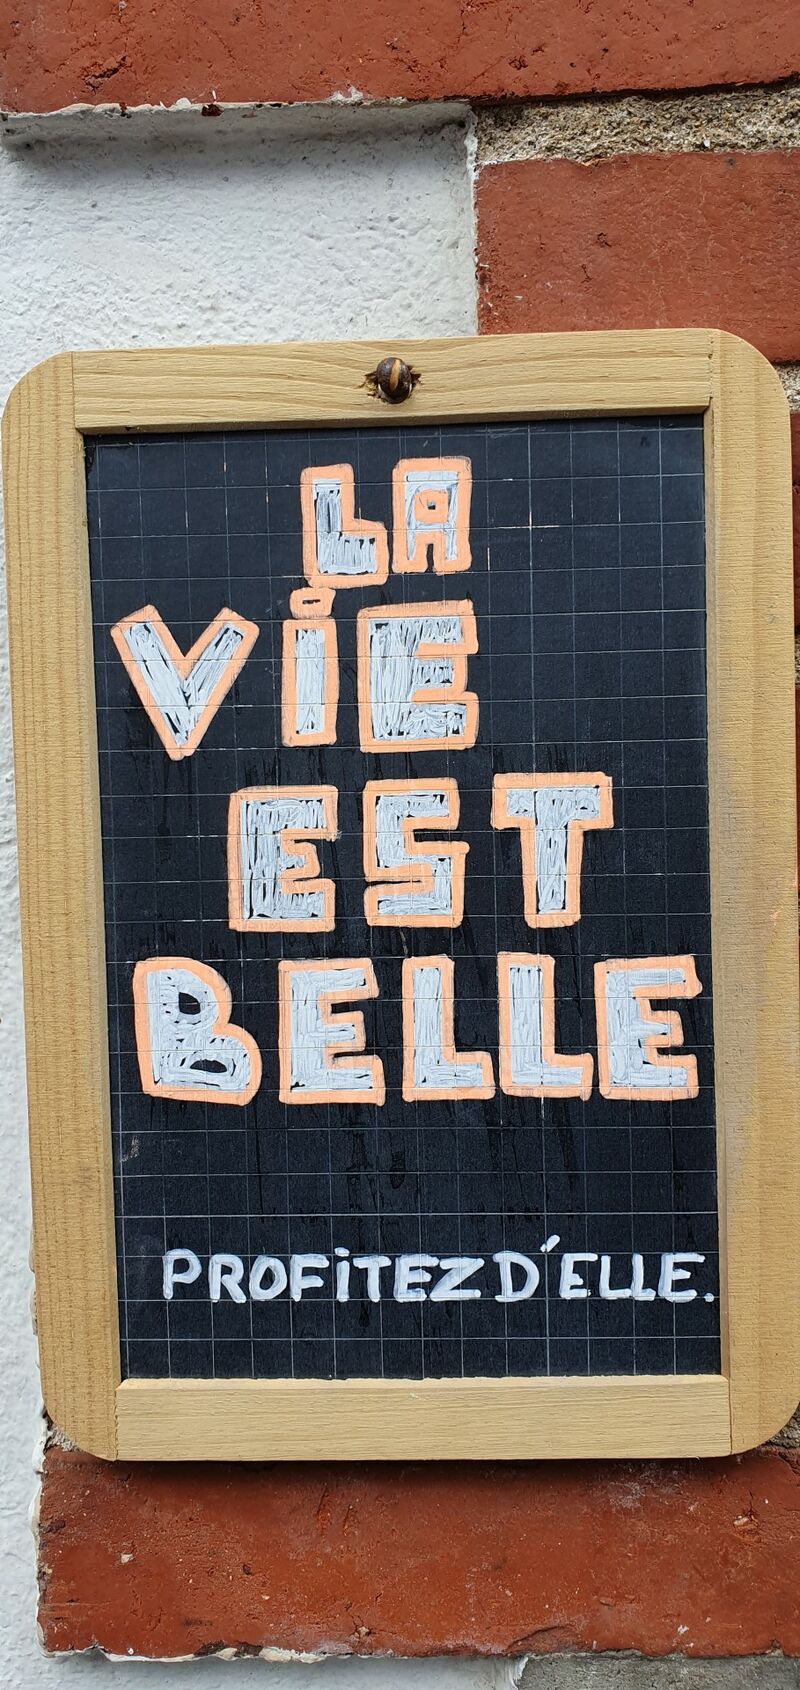 LA
ViE
EST
BELLE
PROFiTEZ D'ELLE.